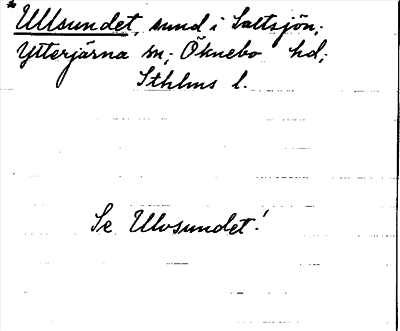 *Ullsundet, sund i Saltsjön;
Ytterjärna sn; Öknebo hd;
Sthlms l.
Se Ulvsundet!